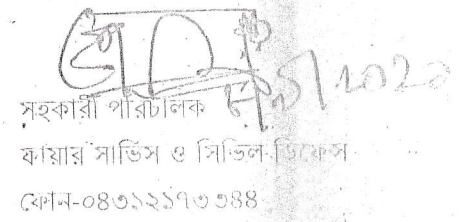 সহকারী পরিচালক
ফায়ার সার্ভিস ও সিভিল ডিফেন্স
ফোন-০৪৩১২১৭৩৩৪৪